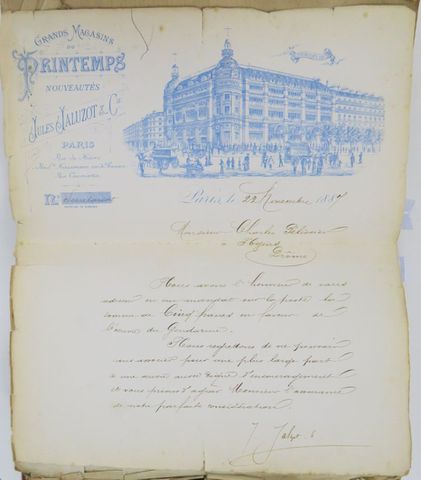 GRANDS MAGASINS
DU
PRINTEMPS
NOUVEAUTÉS
JULES JALUZOT & Cie
PARIS
Rue du Havre
Boul. Haussmann
Rue Caumartin
No
Paris, le 22 Novembre 1887
Monsieur Charles
à
Drôme
Nous avons l'honneur de vous
adresser en un mandat sur la poste la
somme de Cinq francs en faveur de
l'œuvre du Gendarme.
Nous regrettons de ne pouvoir
nous associer pour une plus large part
à une œuvre aussi digne d'encouragement
et vous prions d'agréer Monsieur l'assurance
de notre parfaite considération.